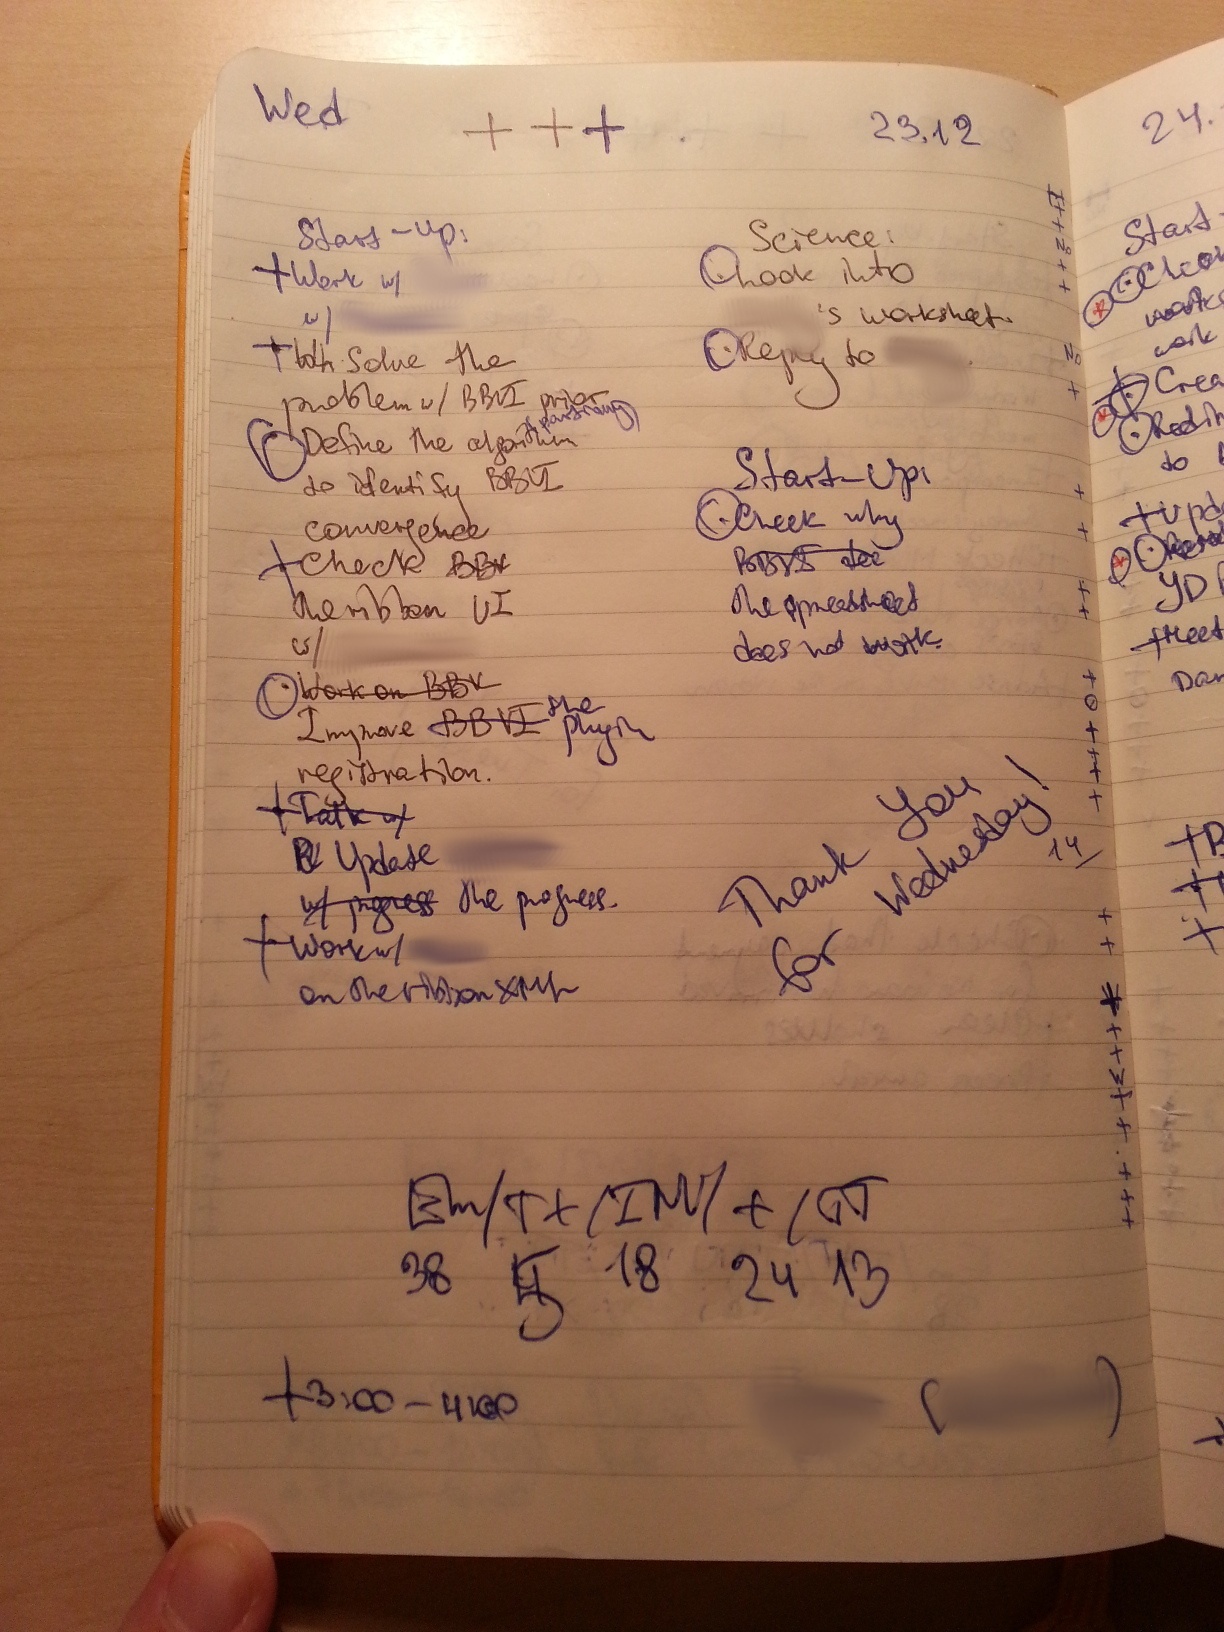 Wed + + + 23.12
Start-up:
+ Work w/
w/
+ solve the
problem w/ BBVI prior
Define the algorithm
to identify BBVI
convergence
+ Check BBV
the ribbon UI
w/
Work on BBV
Improve BBVI the plugin
registration.
+ Talk w/
Update
w/ progress the progress.
+ Work w/
on the ribbon XML
Science:
Look into
's worksheet.
Reply to
Start-up:
Check why
BBVI
the spreadsheet
does not work.
Thank You
for Wednesday!
14/
Em/T+/INV/+/GT
38 5 18 24 13
+ 3:00 - 4:00 ( )
24.
Start-
to
+ Upda
YD
+ Meet
Dan